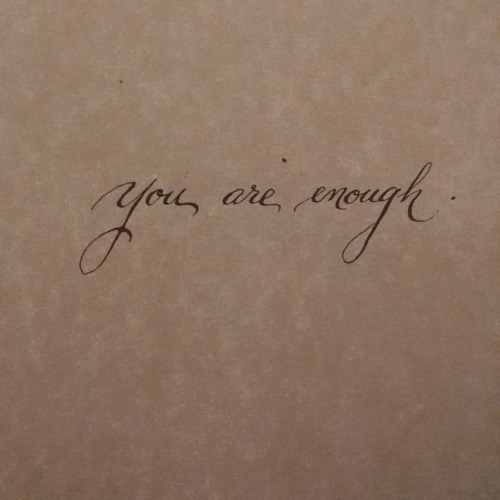 you are enough.